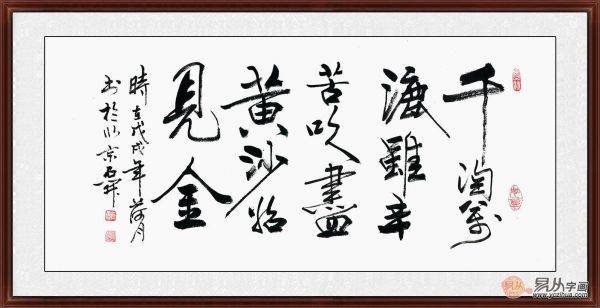 千淘萬
漉雖辛
苦吹盡
黄沙始
見金
時在戊戌年荷月
書於北京
易从字画
www.yczihua.com